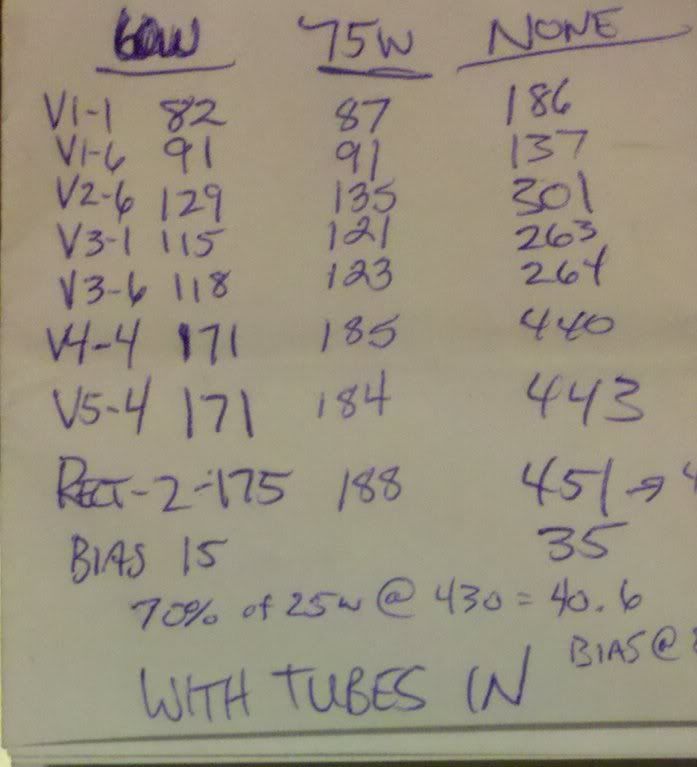 60W 75W NONE
V1-1 82 87 186
V1-6 91 91 137
V2-6 129 135 301
V3-1 115 121 263
V3-6 118 123 264
V4-4 171 185 440
V5-4 171 184 443
RECT-2-175 188 451 → 4
BIAS 15 35
70% of 25W @ 430 = 40.6
BIAS @
WITH TUBES IN